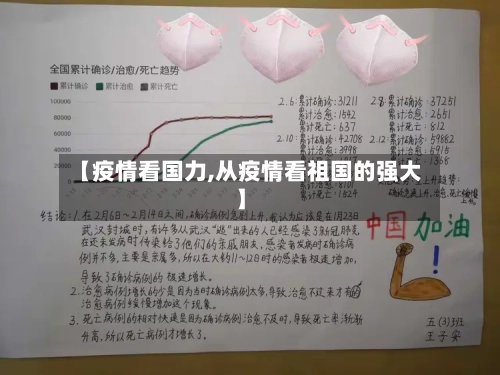 全国累计确诊/治愈/死亡趋势
累计确诊 累计治愈 累计死亡
100000
80000
60000
40000
20000
2.6: 累计确诊:31211
累计治愈:1542
累计死亡:637
2.8: 累计确诊:37251
累计治愈:2651
累计死亡:812
2.10: 累计确诊:42708
累计治愈:3998
2.12: 累计确诊:59882
累计治愈:6915
【疫情看国力,从疫情看祖国的强大
】
结论:1.在2月6号~2月14日大间,确诊病例急剧上升,我认为应该是在1月23日
武汉封城时,有许多从武汉“逃”出来的人已经感染了新冠肺炎
在还未发病时传染给了他们的亲戚朋友,感染者发病时确诊病
例并不多,主要是亲属多,所以在大约11~12日时的感染者极速增加,
导致了确诊病例的极速增长。
2.治愈病例增长的少是因为当时确诊病例太多,导致治愈不过来才有的
治愈病例缓慢增加这个现象。
3.死亡病例的相对快速是因为确诊病例治愈不及时,导致死亡率渐渐
升高,所以死亡病例才增长了。
中国加油
!
五(3)班
王子安